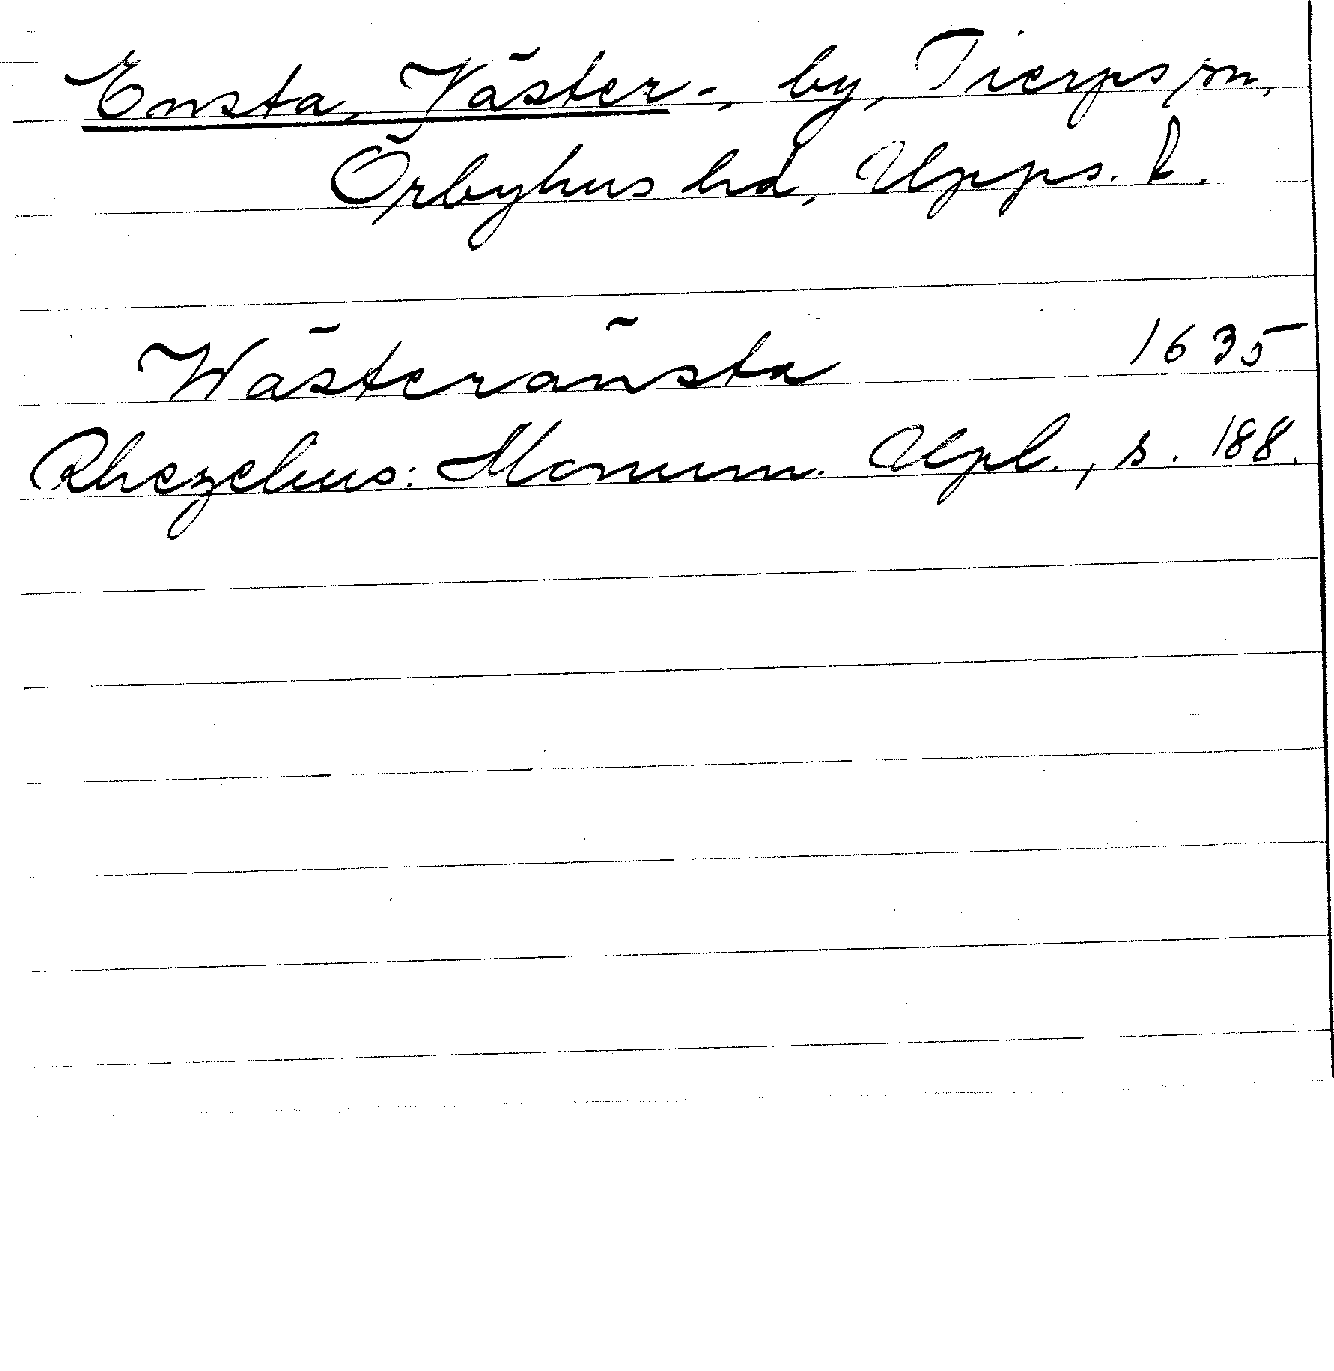 Ensta, Väster-, by, Tierps sn,
Örbyhus hd, Upps. l.
Wästeränsta 1635
Rhezelius: Monum. Upl., s. 188.